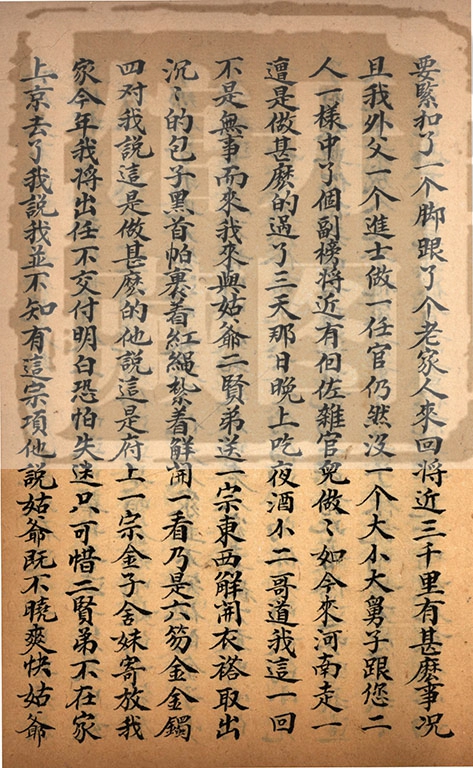 要緊扣了一个脚跟了个老家人來回将近三千里有甚麽事况
且我外父一个進士做一任官仍然没一个大小大舅子跟您二
人一樣中了個副榜将近有個佐雜官兒做〻如今來河南走一
遭是做甚麽的過了三天那日晚上吃夜酒小二哥道我這一回
不是無事而來我來與姑爺二賢弟送一宗東西解開衣褡取出
沉〻的包子黑首帕裹着紅縄紮着解開一看乃是六笏金金鐲
四对我説這是做甚麽的他説這是府上一宗金子舍妹寄放我
家今年我将出任不交付明白恐怕失迷只可惜二賢弟不在家
上京去了我説我並不知有這宗項他説姑爺既不曉爽快姑爺